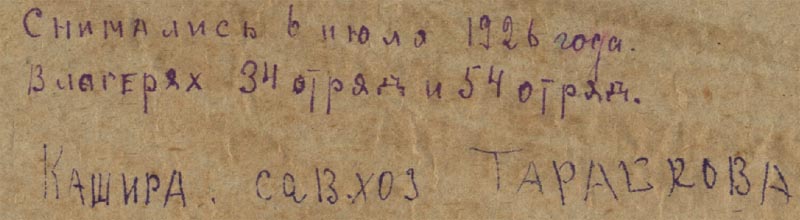 Снимались 6 июля 1926 года.
В лагерях 34 отряд и 54 отряд.
Кашира. савхоз Тараскова